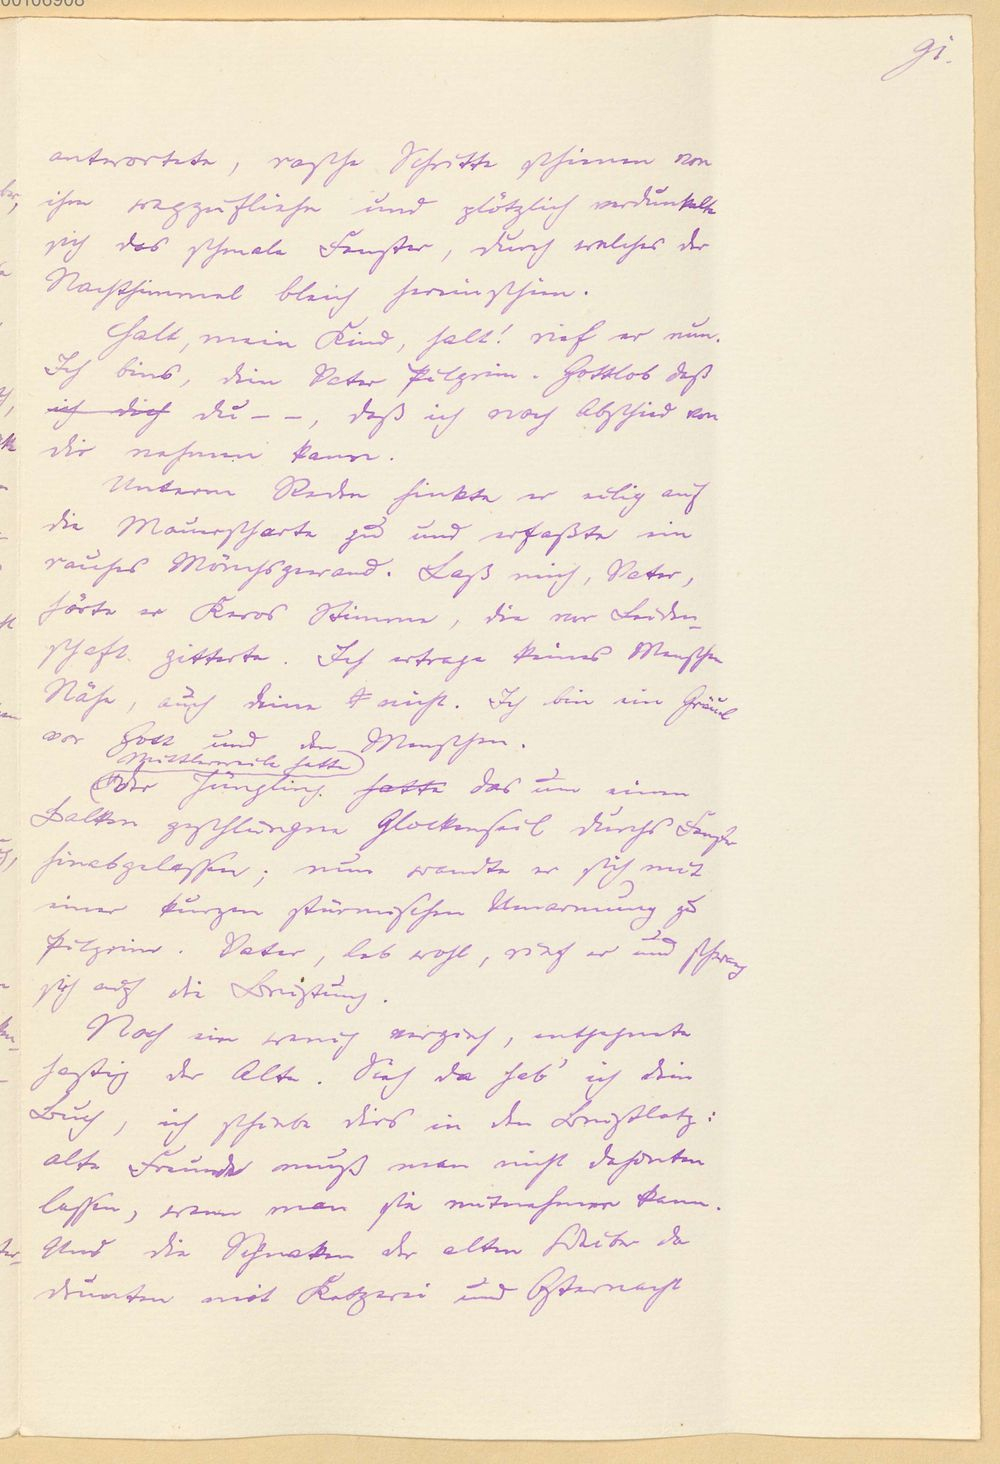 91.
antwortete, rasche Schritte schienen von
ihm wegzufliehn und plötzlich verdunkelte
sich das schmale Fenster, durch welches der
Nachthimmel bleich hereinschien.
Halt, mein Kind, halt! rief er nun.
Ich bins, dein Vater Pilgrim. Gottlob daß
ich dich du – –, daß ich noch Abschied von
dir nehmen kann.
Unterm Reden hinkte er eilig auf
die Mauerscharte zu und erfaßte ein
rauhes Mönchsgewand. Laß mich, Vater,
hörte er Keros Stimme, die vor Leiden-
schaft zitterte. Ich ertrage keines Menschen
Nähe, auch deine nicht. Ich bin ein Gräuel
vor Gott und den Menschen.
Mittlerweile hatte
der Jüngling hatte das um einen
Balken geschlungne Glockenseil durchs Fenster
hinabgelassen; nun wandte er sich mit
einer kurzen stürmischen Umarmung zu
Pilgrim. Vater, leb wohl, rief er und schwang
sich auf die Brüstung.
Noch ein wenig verzieh, entgegnete
hastig der Alte. Sieh da hab' ich dein
Buch, ich schiebe dirs in den Brustlatz:
alte Freunde muß man nicht dahinten
lassen, wenn man sie mitnehmen kann.
Und die Schnaken der alten Weiber da
drunten mit Ketzerei und Osternacht